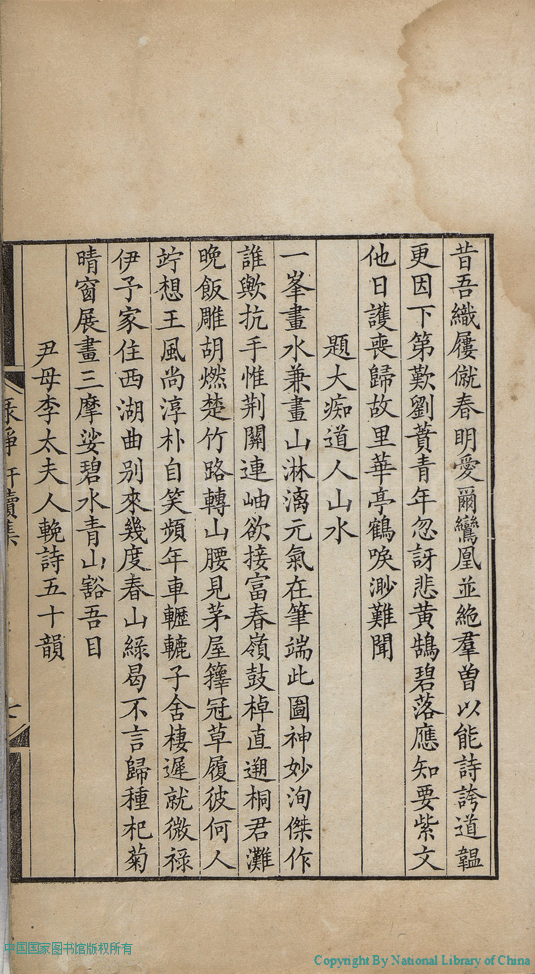 昔吾織屨僦春明愛爾鸞凰並絶羣曽以能詩誇道韞
更因下第歎劉蕡青年忽訝悲黄鵠碧落應知要紫文
他日護喪歸故里華亭鶴唳渺難聞
題大痴道人山水
一峯畫水兼畫山淋漓元氣在筆端此圖神妙洵傑作
誰歟抗手惟荆關連岫欲接富春嶺鼓棹直遡桐君灘
晩飯雕胡燃楚竹路轉山腰見茅屋籜冠草履彼何人
竚想王風尚淳朴自笑頻年車轣轆子舍棲遲就微禄
伊予家住西湖曲别來幾度春山緑曷不言歸種杞菊
晴窗展畫三摩娑碧水青山豁吾目
尹母李太夫人輓詩五十韻
軒讀集
七
中国国家图书馆版权所有
Copyright By National Library of China